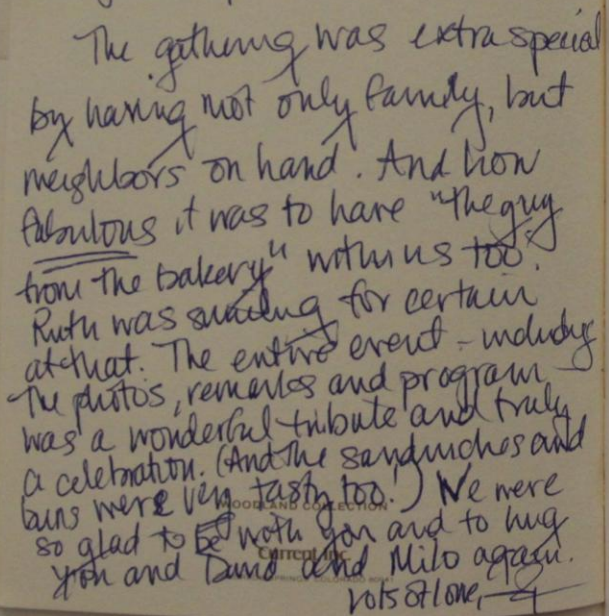 The gathering was extra special
by having not only family, but
neighbors on hand. And how
fabulous it was to have "the guy
from the bakery" with us too.
Ruth was smiling for certain
at that. The entire event - including
the photos, remarks and program
was a wonderful tribute and truly
a celebration. (And the sandwiches and
buns were very tasty too!) We were
WOODLAND COLLECTION
so glad to be with you and to hug
Current Inc.
you and David and Milo again.
SPRINGS, COLORADO
Lots of love,